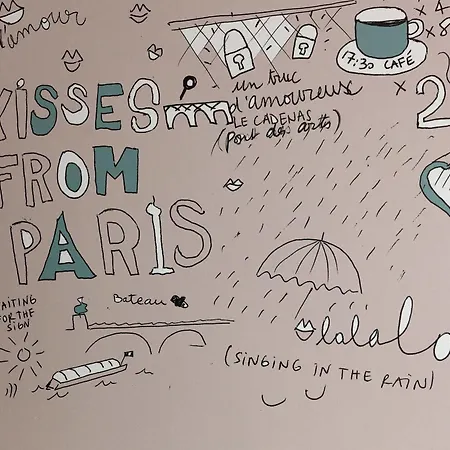 d'amour
x 4
x 8
17:30 CAFÉ
x 2
un truc
d'amoureux
LE CADENAS
(Pont des arts)
KISSES
FROM
PARIS
WAITING
FOR THE
SIGN
Bateau
lalalo
(SINGING IN THE RAIN)